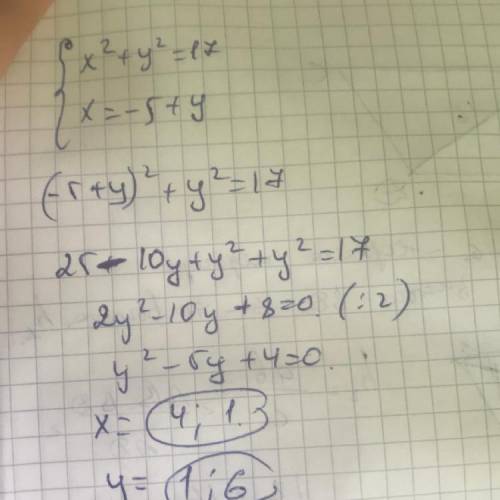 x² + y² = 17
x = -5 + y
(-5 + y)² + y² = 17
25 - 10y + y² + y² = 17
2y² - 10y + 8 = 0. (: 2)
y² - 5y + 4 = 0.
x = 4; 1.
y = 1; 6